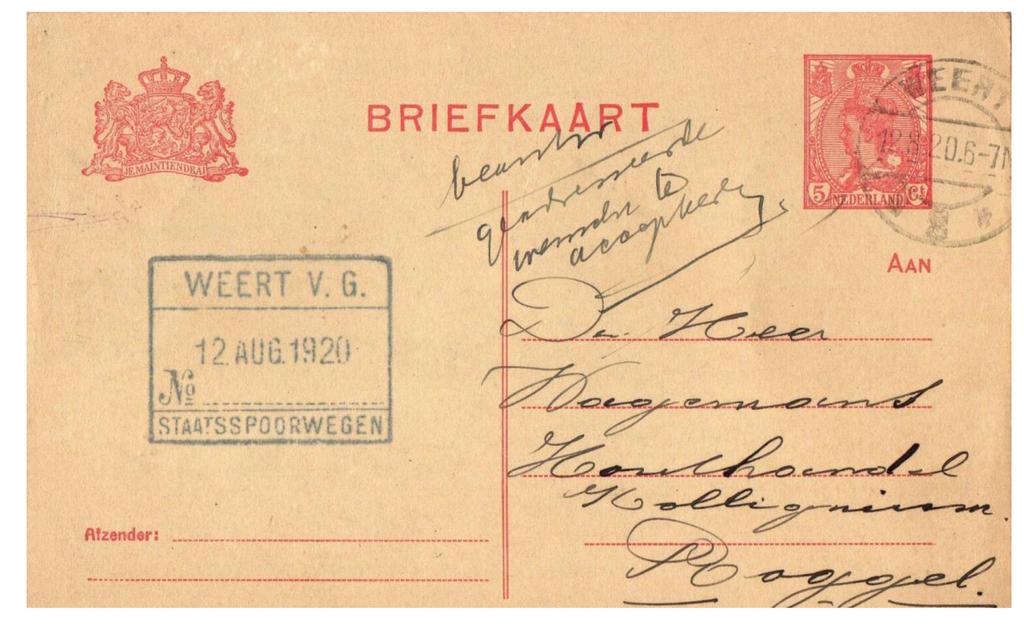 JE MAINTIENDRAI
BRIEFKAART
5 NEDERLAND Ct
WEERT
12.8.20.6-7N
geadresseerde
wenscht te
accepteeren
AAN
WEERT V. G.
12 AUG. 1920
No
STAATSSPOORWEGEN
Den Heer
Wagemans
Houthandel
Roggel.
Afzender: